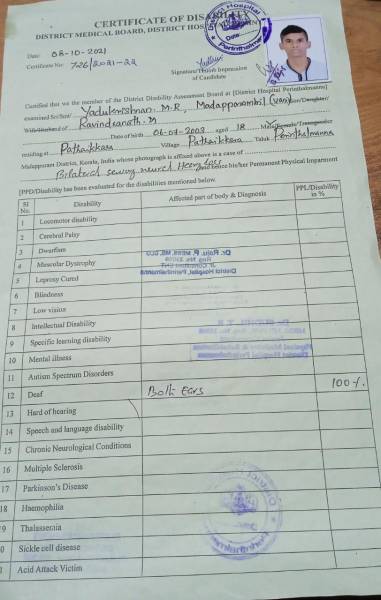 CERTIFICATE OF DISABILITY
DISTRICT MEDICAL BOARD, DISTRICT HOSPITAL
Date: 08-10-2021
Certificate No: 726/2021-22
Signature/Thumb Impression
of Candidate
Certified that we the member of the District Disability Assessment Board at [District Hospital Perinthalmanna]
examined Sri/Smt Yadukrishnan. M.R, Madapparambil (van) Son/Daughter/
Wife/Husband of Ravindranath. M
Date of birth 06-07-2003 aged 18 Male/Female/Transgender
residing at Pathaikkara Village Pathaikkara Taluk Perinthalmanna
Malappuram District, Kerala, India whose photograph is affixed above is a case of
Bilateral and hence his/her Permanent Physical Impairment
[PPD/Disability has been evaluated for the disabilities mentioned below.
Sl No. Disability Affected part of body & Diagnosis PPL/Disability in %
1 Locomotor disability
2 Cerebral Palsy
3 Dwarfism
4 Muscular Dystrophy
5 Leprosy Cured
6 Blindness
7 Low vision
8 Intellectual Disability
9 Specific learning disability
10 Mental illness
11 Autism Spectrum Disorders
12 Deaf Both Ears 100%
13 Hard of hearing
14 Speech and language disability
15 Chronic Neurological Conditions
16 Multiple Sclerosis
17 Parkinson's Disease
18 Haemophilia
9 Thalassemia
0 Sickle cell disease
Acid Attack Victim